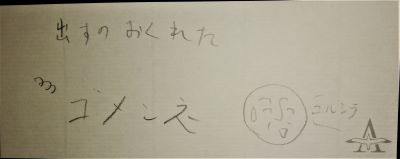 出すの おくれた
ゴメンネ
ユルシテ